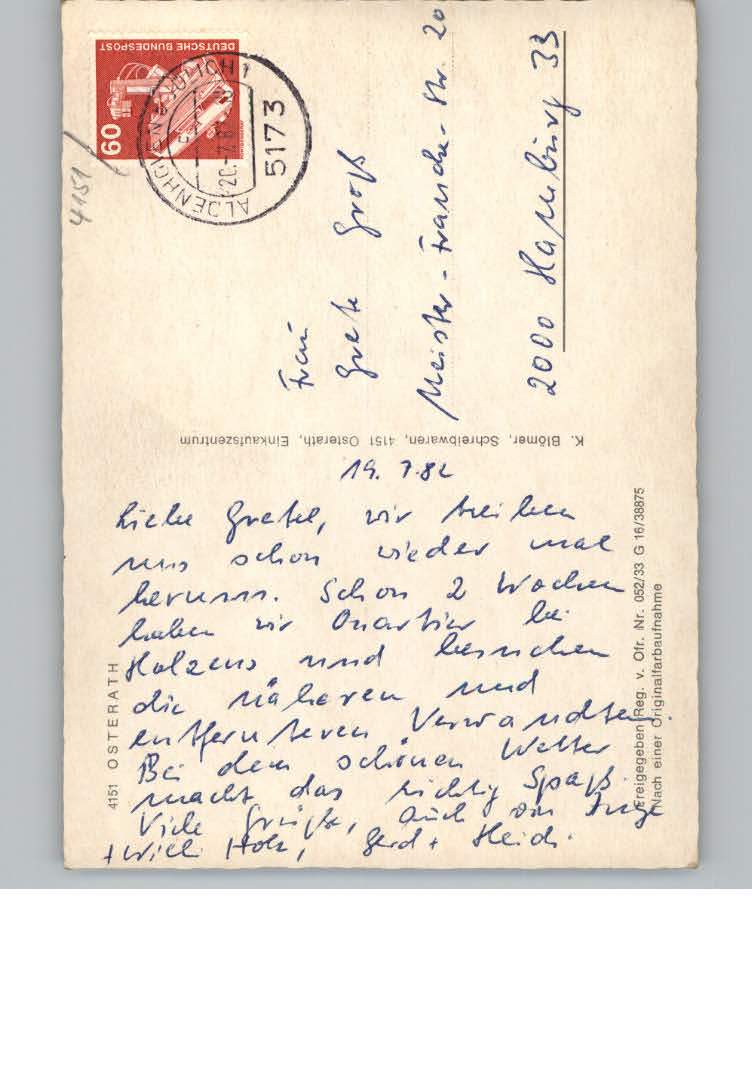 DEUTSCHE BUNDESPOST
60
ALDENHOVEN B JÜLICH 1
20.-7.8
5173
4151
Frau
Grete Groß
Meister-Francke-Str. 20
2000 Hamburg 33
K. Blömer, Schreibwaren, 4151 Osterath, Einkaufszentrum
19. 7.82
Liebe Gretel, wir treiben
uns schon wieder mal
herum. Schon 2 Wochen
haben wir Quartier bei
Holzens und besuchen
die näheren und
entfernteren Verwandten.
Bei dem schönen Wetter
macht das richtig Spaß.
Viele Grüße, auch von Inge
+ Willi Holz, Gerd + Heidi.
4151 OSTERATH
Freigegeben Reg. v. Ofr. Nr. 052/33 G 16/38875
Nach einer Originalfarbaufnahme